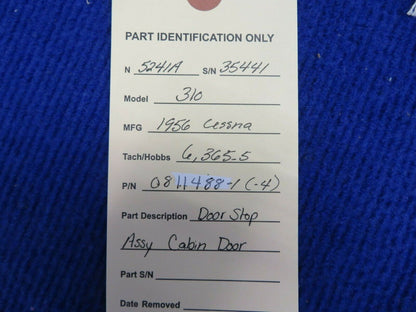 PART IDENTIFICATION ONLY
N 5241A S/N 35441
Model 310
MFG 1956 Cessna
Tach/Hobbs 6,365.5
P/N 0811488-1 (-4)
Part Description Door Stop
Assy Cabin Door
Part S/N
Date Removed